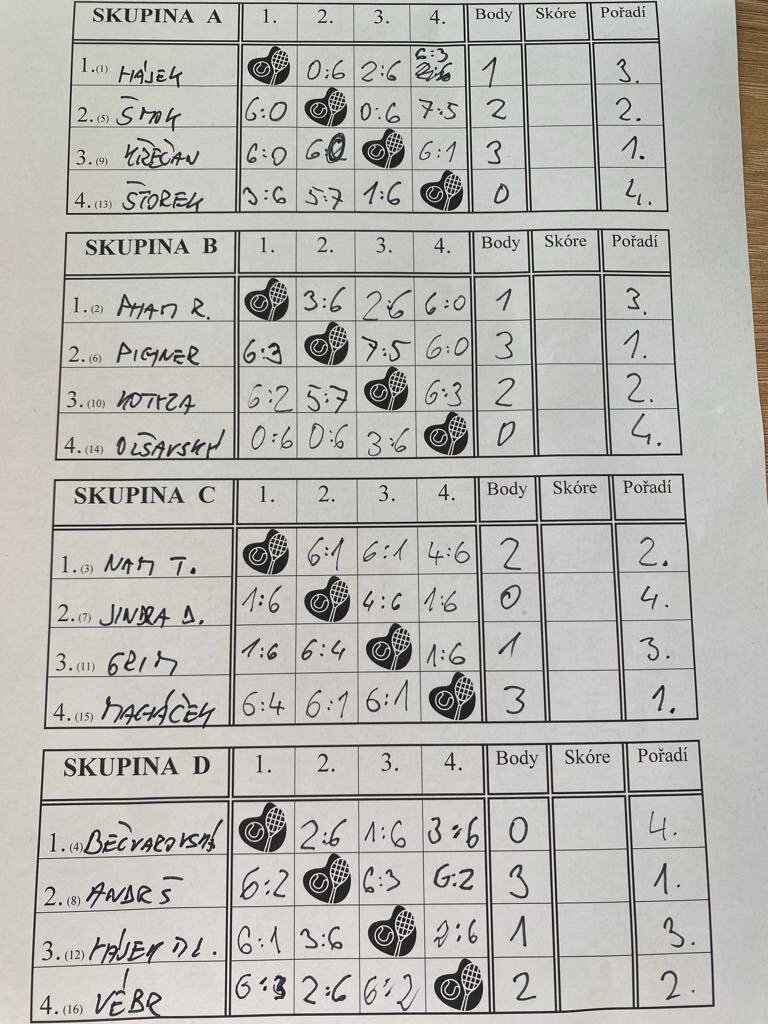 SKUPINA A 1. 2. 3. 4. Body Skóre Pořadí
1.(1) HÁJEK 0:6 2:6 6:3 1 3.
2.(5) ŠMOK 6:0 0:6 7:5 2 2.
3.(9) KŘEČAN 6:0 6:0 6:1 3 1.
4.(13) ŠTOREK 3:6 5:7 1:6 0 4.
SKUPINA B 1. 2. 3. 4. Body Skóre Pořadí
1.(2) PHAM R. 3:6 2:6 6:0 1 3.
2.(6) PIGNER 6:3 7:5 6:0 3 1.
3.(10) KOTYZA 6:2 5:7 6:3 2 2.
4.(14) OLŠAVSKÝ 0:6 0:6 3:6 0 4.
SKUPINA C 1. 2. 3. 4. Body Skóre Pořadí
1.(3) NAM T. 6:1 6:1 4:6 2 2.
2.(7) JINDRA D. 1:6 4:6 1:6 0 4.
3.(11) GRIM 1:6 6:4 1:6 1 3.
4.(15) MACHÁČEK 6:4 6:1 6:1 3 1.
SKUPINA D 1. 2. 3. 4. Body Skóre Pořadí
1.(4) BEČVAROVSKÝ 2:6 1:6 3:6 0 4.
2.(8) ANDRŠ 6:2 6:3 6:2 3 1.
3.(12) HÁJEK ML. 6:1 3:6 2:6 1 3.
4.(16) VÉBR 6:3 2:6 6:2 2 2.